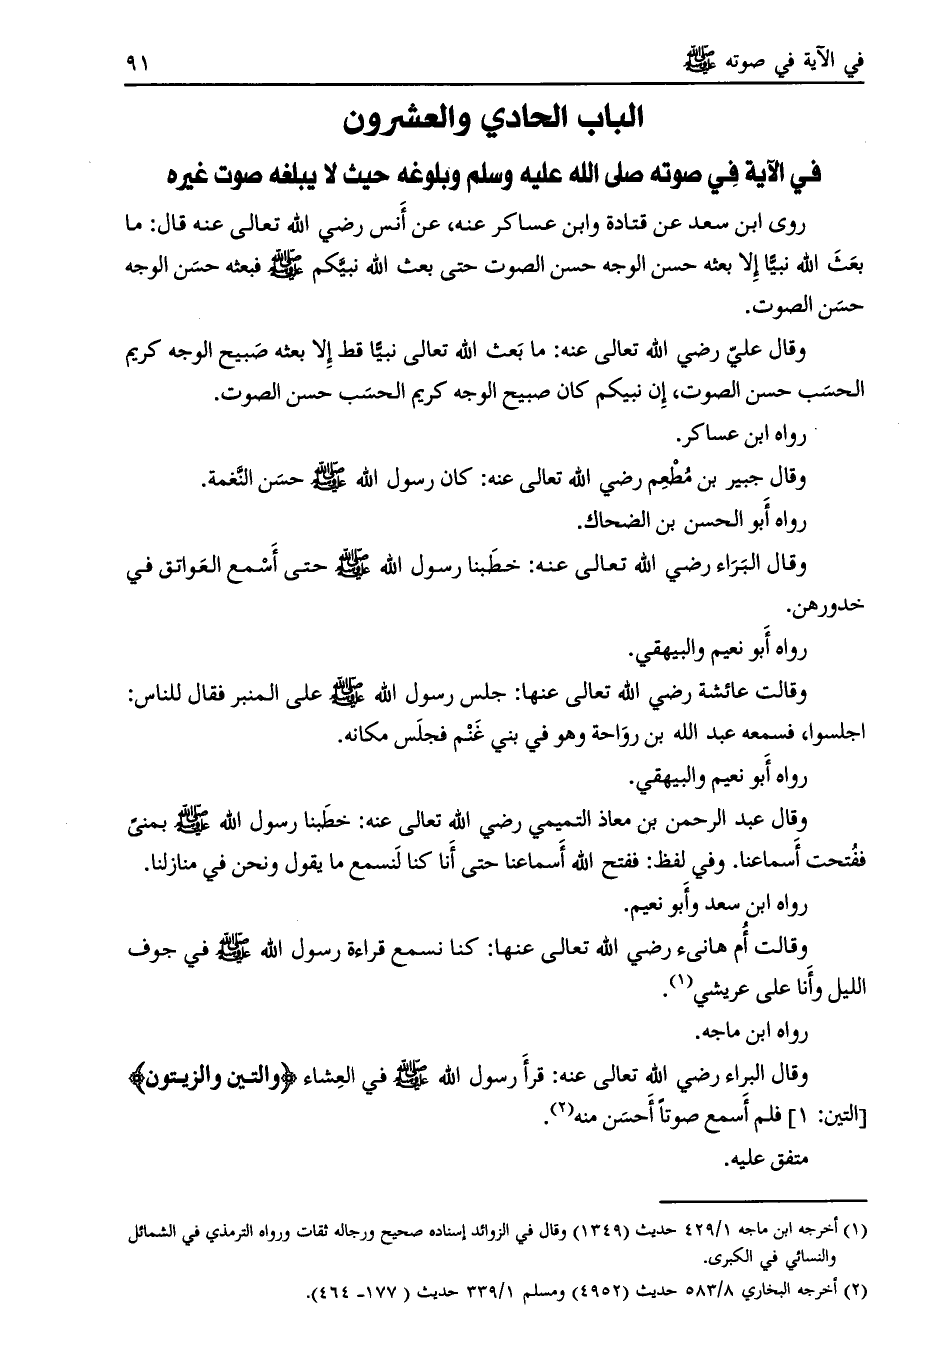 في الآية في صوته ﷺ ٩١
الباب الحادي والعشرون
في الآية فِي صوته صلى الله عليه وسلم وبلوغه حيث لا يبلغه صوت غيره
روى ابن سعد عن قتادة وابن عساكر عنه، عن أَنس رضي الله تعالى عنه قال: ما
بعَثَ الله نبيًّا إِلا بعثه حسن الوجه حسن الصوت حتى بعث الله نبيَّكم ﷺ فبعثه حسَن الوجه
حسَن الصوت.
وقال عليّ رضي الله تعالى عنه: ما بَعث الله تعالى نبيًّا قط إِلا بعثه صَبيح الوجه كريم
الحسَب حسن الصوت، إِن نبيكم كان صبيح الوجه كريم الحسَب حسن الصوت.
رواه ابن عساكر.
وقال جبير بن مُطْعِم رضي الله تعالى عنه: كان رسول الله ﷺ حسَن النَّغمة.
رواه أَبو الحسن بن الضحاك.
وقال البَرَاء رضي الله تعالى عنه: خطَبنا رسول الله ﷺ حتى أَسْمع العَواتق في
خدورهن.
رواه أَبو نعيم والبيهقي.
وقالت عائشة رضي الله تعالى عنها: جلس رسول الله ﷺ على المنبر فقال للناس:
اجلسوا، فسمعه عبد الله بن روَاحة وهو في بني غَنْم فجلَس مكانه.
رواه أَبو نعيم والبيهقي.
وقال عبد الرحمن بن معاذ التميمي رضي الله تعالى عنه: خطَبنا رسول الله ﷺ بمنىً
ففُتحت أَسماعنا. وفي لفظ: ففتح الله أَسماعنا حتى أَنا كنا لَنسمع ما يقول ونحن في منازلنا.
رواه ابن سعد وأَبو نعيم.
وقالت أُم هانىء رضي الله تعالى عنها: كنا نسمع قراءة رسول الله ﷺ في جوف
الليل وأَنا على عريشي(١).
رواه ابن ماجه.
وقال البراء رضي الله تعالى عنه: قرأَ رسول الله ﷺ في العِشاء ﴿والتين والزيتون﴾
[التين: ١] فلم أَسمع صوتاً أَحسَن منه(٢).
متفق عليه.
(١) أخرجه ابن ماجه ٤٢٩/١ حديث (١٣٤٩) وقال في الزوائد إسناده صحيح ورجاله ثقات ورواه الترمذي في الشمائل
والنسائي في الكبرى.
(٢) أخرجه البخاري ٥٨٣/٨ حديث (٤٩٥٢) ومسلم ٣٣٩/١ حديث (١٧٧- ٤٦٤).